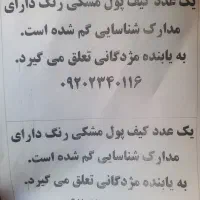 یک عدد کیف پول مشکی رنگ دارای
مدارک شناسایی گم شده است.
به یابنده مژدگانی تعلق می گیرد.
۰۹۲۰۲۳۴۰۱۱۶
یک عدد کیف پول مشکی رنگ دارای
مدارک شناسایی گم شده است.
به یابنده مژدگانی تعلق می گیرد.